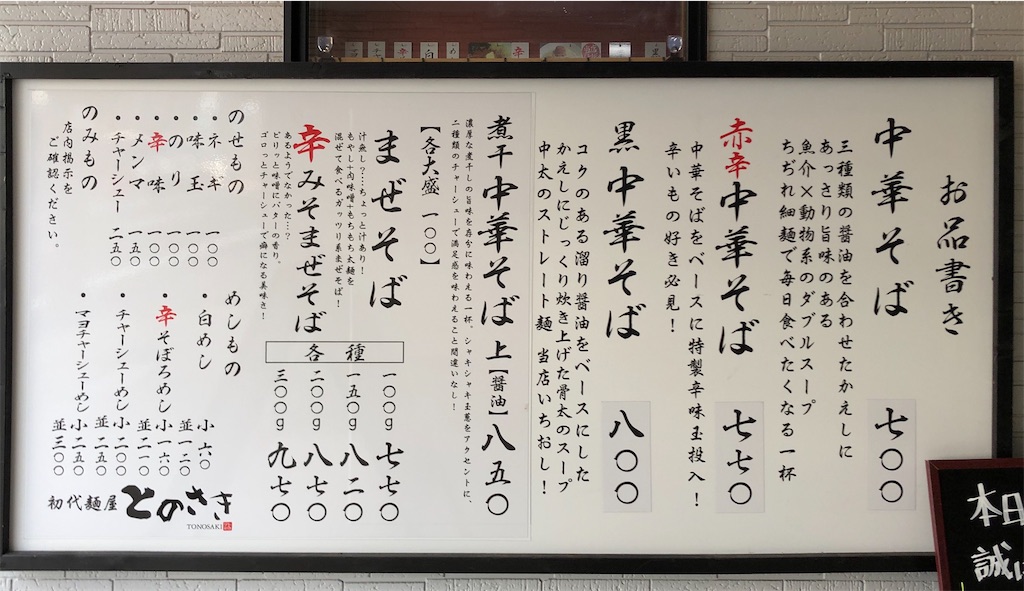 お品書き
中華そば 七〇〇
三種類の醤油を合わせたかえしに
あっさり旨味のある
魚介×動物系のダブルスープ
ちぢれ細麺で毎日食べたくなる一杯
赤辛中華そば 七七〇
中華そばをベースに特製辛味玉投入！
辛いもの好き必見！
黒中華そば 八〇〇
コクのある溜り醤油をベースにした
かえしにじっくり炊き上げた骨太のスープ
中太のストレート麺 当店いちおし！
煮干中華そば 上【醤油】八五〇
濃厚な煮干しの旨味を存分に味わえる一杯。シャキシャキ玉葱をアクセントに、
二種類のチャーシューで満足感を味わえること間違いなし！
【各大盛 一〇〇】
まぜそば
汁無し？…ちょっと汁あり！
もやし+肉味噌+もちもち太麺を
混ぜて食べるガッツリ系まぜそば！
辛みそまぜそば
あるようでなかった…？
ピリッと味噌にバターの香り。
ゴロっとチャーシューで癖になる美味さ！
各種
一〇〇g 七七〇
一五〇g 八二〇
二〇〇g 八七〇
三〇〇g 九七〇
のせもの
・ネギ 一〇〇
・味玉 一〇〇
・のり 一〇〇
・辛味 一〇〇
・メンマ 一五〇
・チャーシュー 二五〇
のみもの
店内掲示を
ご確認ください。
めしもの
・白めし 小 六〇
並 一二〇
・辛そぼろめし 小 一六〇
並 二一〇
・チャーシューめし 小 二〇〇
並 二五〇
・マヨチャーシューめし 小 二五〇
並 三〇〇
初代麺屋 とのさき
TONOSAKI
本日
誠に